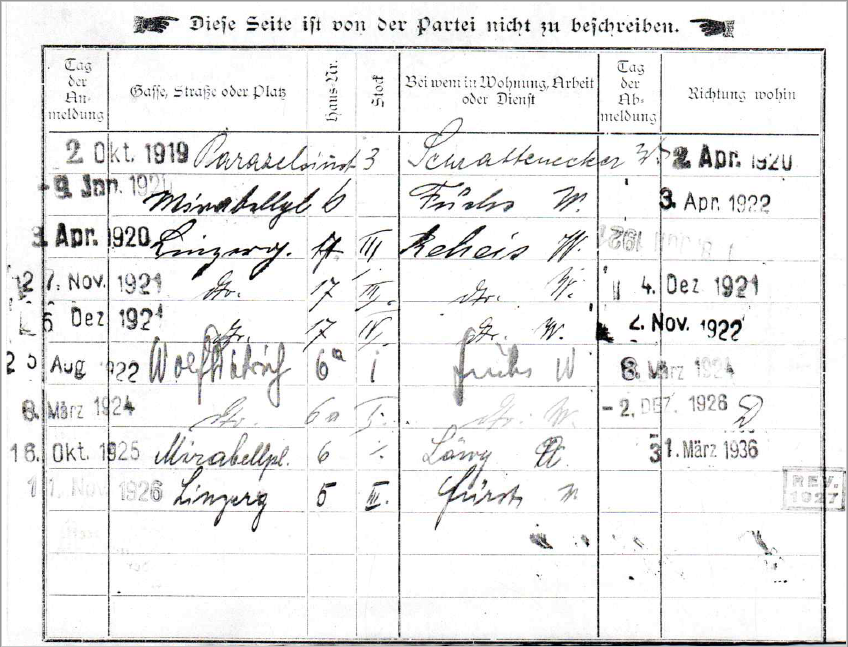 Diese Seite ist von der Partei nicht zu beschreiben.
Tag der An-meldung Gasse, Straße oder Platz Haus-Nr. Stock Bei wem in Wohnung, Arbeit oder Dienst Tag der Ab-meldung Richtung wohin
2 Okt. 1919 3 Schrattenecker W. 2. Apr. 1920
9 Jan. 192 Mirabellpl 6 Fuchs W. 3. Apr. 1922
3. Apr. 1920 Linzerg. 17 III Reheis W.
7. Nov. 1921 dto. 17 III. dto. W. 4. Dez 1921
5 Dez 1921 dto. 17 IV. dto. W. 2. Nov. 1922
25 Aug 1922 Wolfdietrich 6a I Fuchs W 8. März 1924
8. März 1924 dto. 6a I. dto. W. - 2. DEZ. 1926
16. Okt. 1925 Mirabellpl. 6 1. Löwy W 31. März 1936
1 1. Nov 1926 Linzerg 5 III. Fürst W
REV. 1927